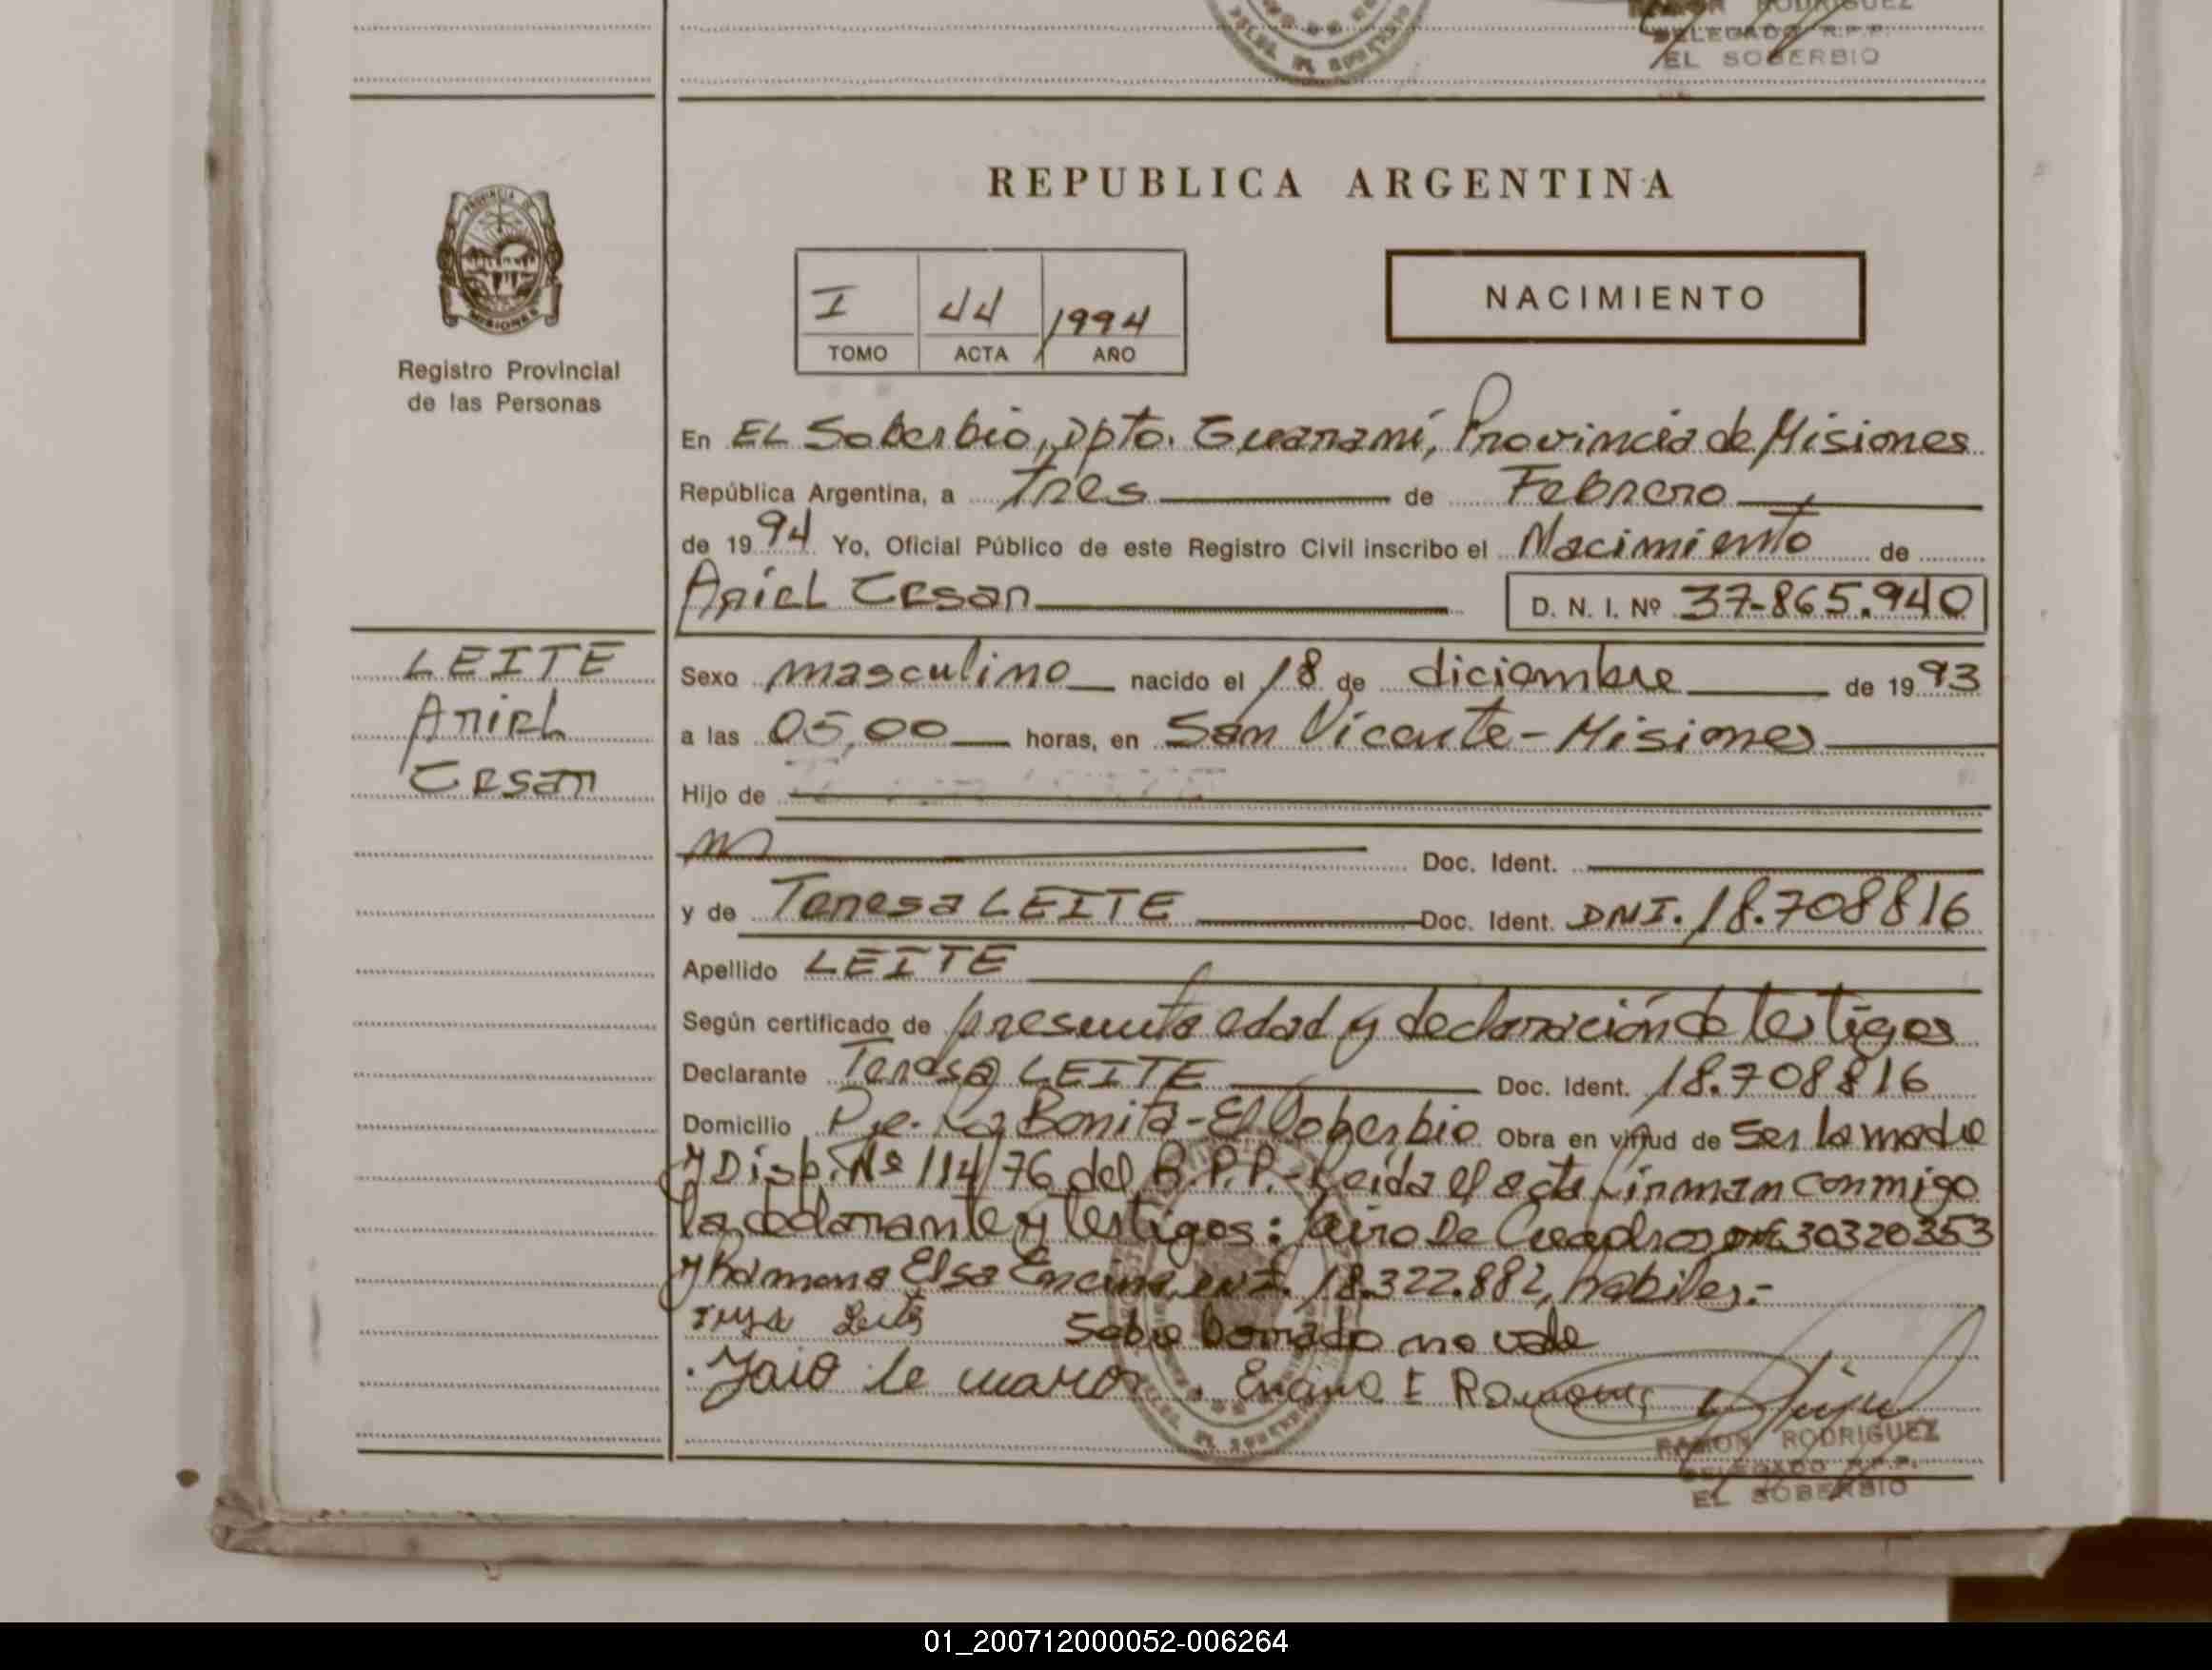 RAMON RODRIGUEZ
DELEGADO R.P.P.
EL SOBERBIO
REPUBLICA ARGENTINA
PROVINCIA DE
MISIONES
Registro Provincial
de las Personas
I 44 1994
TOMO ACTA AÑO
NACIMIENTO
En EL Soberbio, Dpto. Guaraní, Provincia de Misiones
República Argentina, a Tres de Febrero
de 1994 Yo, Oficial Público de este Registro Civil inscribo el Nacimiento de
Ariel Cesar D. N. I. Nº 37-865.940
LEITE
Ariel
Cesar
Sexo masculino nacido el 18 de diciembre de 1993
a las 05,00 horas, en San Vicente - Misiones
Hijo de
Doc. Ident.
y de Teresa LEITE Doc. Ident. DNI. 18.708816
Apellido LEITE
Según certificado de presunta edad y declaración de testigos
Declarante Teresa LEITE Doc. Ident. 18.708816
Domicilio Pje. La Bonita - El Soberbio Obra en virtud de Ser la madre
y Disp. Nº 114/76 del R.P.P. - Leída el acta firman conmigo
la declarante y testigos: Jairo De Cuadros 30320353
y Ramona Elsa Encina, DNI. 18.322.882, habiles.-
Sobre borrado no vale
Encina E Ramona
RAMON RODRIGUEZ
DELEGADO R.P.P.
EL SOBERBIO
01_200712000052-006264